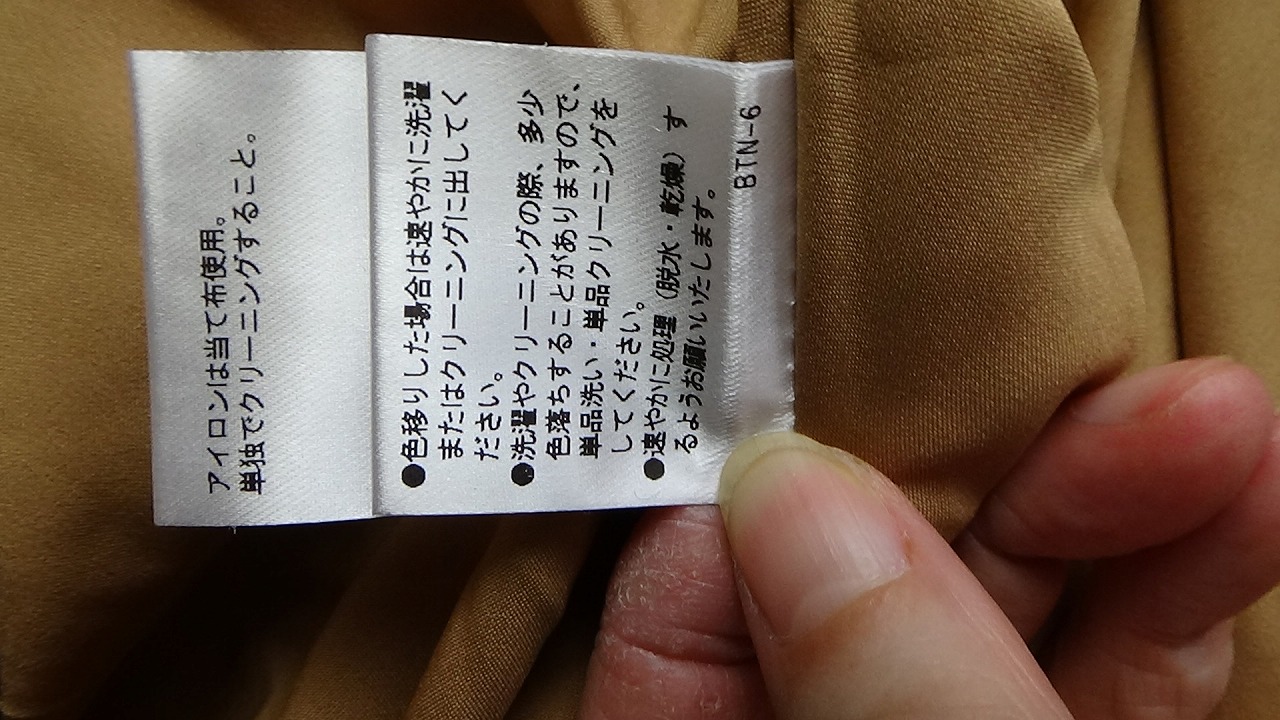 アイロンは当て布使用。
単独でクリーニングすること。
●色移りした場合は速やかに洗濯
またはクリーニングに出してく
ださい。
●洗濯やクリーニングの際、多少
色落ちすることがありますので、
単品洗い・単品クリーニングを
してください。
●速やかに処理（脱水・乾燥）す
るようお願いいたします。
BTN-6